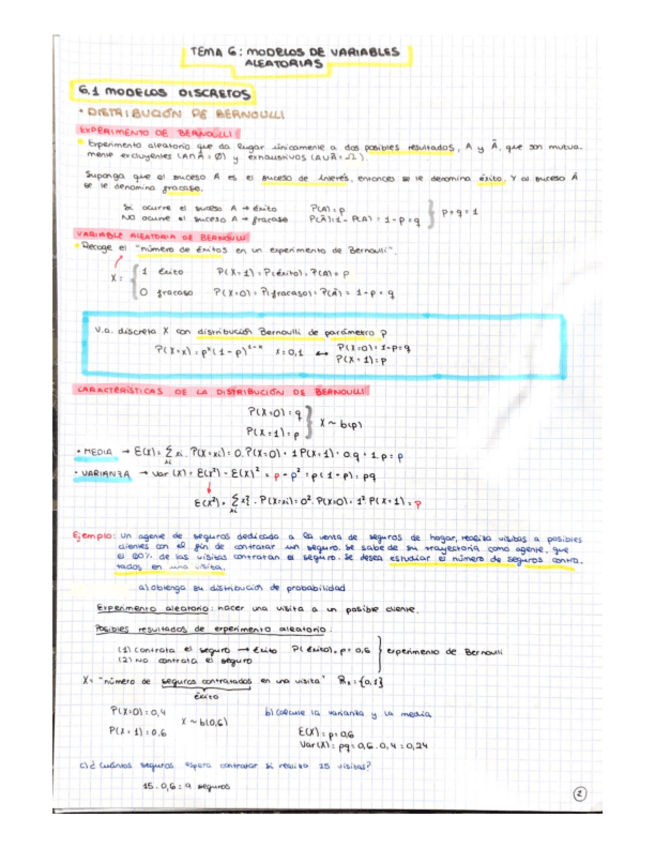 TEMA 6: MODELOS DE VARIABLES
ALEATORIAS
6.1 MODELOS DISCRETOS
• DISTRIBUCIÓN DE BERNOULLI
EXPERIMENTO DE BERNOULLI
Experimento aleatorio que da lugar únicamente a dos posibles resultados, A y Ā, que son mutua-
mente excluyentes (A∩Ā = Ø) y exhaustivos (A∪Ā = Ω).
Suponga que el suceso A es el suceso de interés, entonces se le denomina éxito. Y al suceso Ā
se le denomina fracaso.
Si ocurre el suceso A → éxito P(A) = p
NO ocurre el suceso A → fracaso P(Ā) = 1 - P(A) = 1 - p = q } p + q = 1
VARIABLE ALEATORIA DE BERNOULLI
Recoge el "número de éxitos en un experimento de Bernoulli".
X = { 1 éxito P(X=1) = P(éxito) = P(A) = p
0 fracaso P(X=0) = P(fracaso) = P(Ā) = 1 - p = q
V.a. discreta X con distribución Bernoulli de parámetro p
P(X=x) = pˣ (1-p)¹⁻ˣ x = 0,1 ↔ P(X=0) = 1-p = q
P(X=1) = p
CARACTERÍSTICAS DE LA DISTRIBUCIÓN DE BERNOULLI
P(X=0) = q
P(X=1) = p } X ~ b(p)
• MEDIA → E(X) = Σ xi · P(X=xi) = 0 · P(X=0) + 1 P(X=1) = 0 · q + 1 · p = p
• VARIANZA → Var (X) = E(X²) - E(X)² = p - p² = p(1-p) = pq
E(X²) = Σ xi² · P(X=xi) = 0² · P(X=0) + 1² P(X=1) = p
Ejemplo: Un agente de seguros dedicada a la venta de seguros de hogar, realiza visitas a posibles
clientes con el fin de contratar un seguro. Se sabe de su trayectoria como agente, que
el 60% de las visitas contratan el seguro. Se desea estudiar el número de seguros contra-
tados en una visita.
a) obtenga su distribución de probabilidad
Experimento aleatorio: hacer una visita a un posible cliente.
Posibles resultados de experimento aleatorio:
(1) Contrata el seguro → éxito P(éxito) = p = 0,6
(2) NO contrata el seguro } experimento de Bernoulli
X = "número de seguros contratados en una visita" Rx = {0,1}
éxito
P(X=0) = 0,4
P(X=1) = 0,6 X ~ b(0,6)
b) calcule la varianza y la media
E(X) = p = 0,6
Var(X) = pq = 0,6 · 0,4 = 0,24
c) ¿Cuántos seguros espera contratar si realiza 15 visitas?
15 · 0,6 = 9 seguros
2